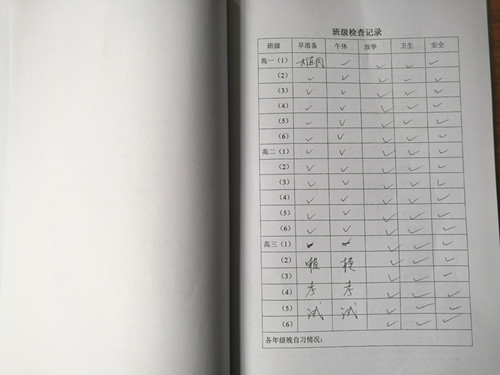 班级检查记录
班级 早准备 午休 放学 卫生 安全
高一（1） ✓ ✓ ✓ ✓
（2） ✓ ✓ ✓ ✓ ✓
（3） ✓ ✓ ✓ ✓ ✓
（4） ✓ ✓ ✓ ✓ ✓
（5） ✓ ✓ ✓ ✓ ✓
（6） ✓ ✓ ✓ ✓ ✓
高二（1） ✓ ✓ ✓ ✓ ✓
（2） ✓ ✓ ✓ ✓ ✓
（3） ✓ ✓ ✓ ✓ ✓
（4） ✓ ✓ ✓ ✓ ✓
（5） ✓ ✓ ✓ ✓ ✓
（6） ✓ ✓ ✓ ✓ ✓
高三（1） ✓ ✓ ✓ ✓ ✓
（2） ✓ ✓ ✓
（3） ✓ ✓ ✓
（4） 考 考 ✓ ✓ ✓
（5） 试 试 ✓ ✓ ✓
（6） ✓ ✓ ✓
各年级晚自习情况：